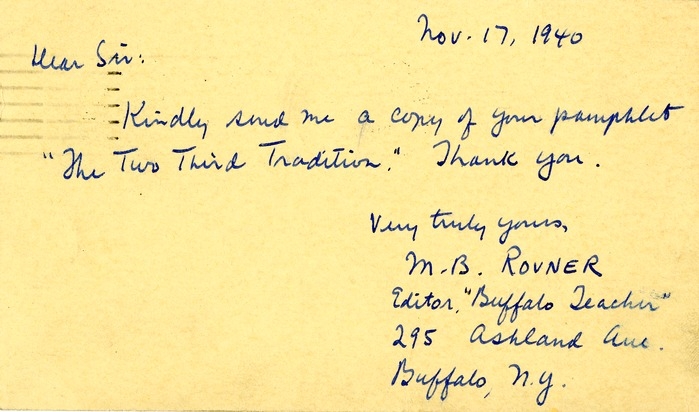 Nov. 17, 1940
Dear Sir:
Kindly send me a copy of your pamphlet
"The Two Third Tradition." Thank you.
Very truly yours,
M.B. ROVNER
Editor, "Buffalo Teacher"
295 Ashland Ave.
Buffalo, N.Y.